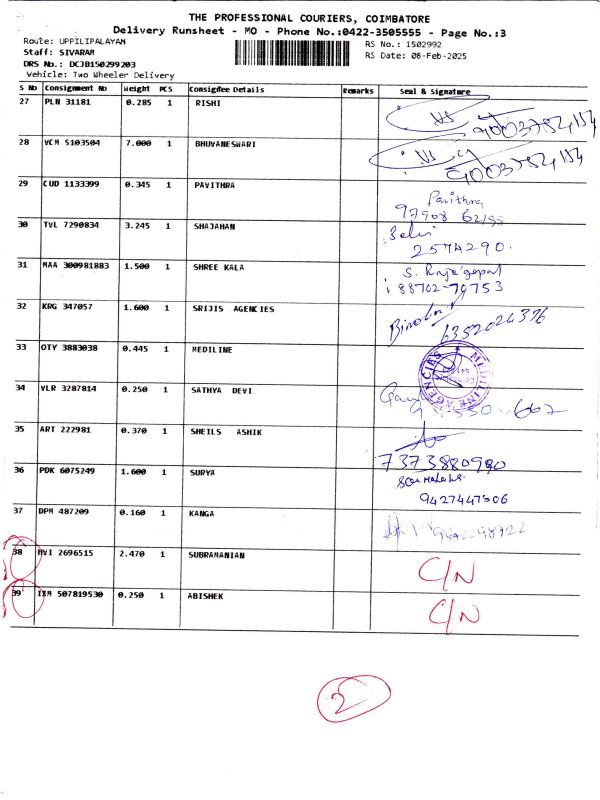 THE PROFESSIONAL COURIERS, COIMBATORE
Delivery Runsheet - MO - Phone No.:0422-3505555 - Page No.:3
Route: UPPILIPALAYAM RS No.: 1502992
Staff: SIVARAM RS Date: 08-Feb-2025
DRS No.: DCJB150299203
Vehicle: Two Wheeler Delivery
S No Consignment No Weight PCS Consignee Details Remarks Seal & Signature
27 PLN 31181 0.285 1 RISHI 9003754154
28 VCM 5103504 7.000 1 BHUVANESWARI 9003754154
29 CUD 1133399 0.345 1 PAVITHRA Pavithra
97908 62155
30 TVL 7290834 3.245 1 SHAJAHAN Selvi
2574290.
31 MAA 300981883 1.500 1 SHREE KALA S. Rajagopal
88702-70753
32 KRG 347057 1.600 1 SRIJIS AGENCIES 6352024376
33 OTY 3883038 0.445 1 MEDILINE MEDILINE AGENCIES
34 VLR 3287814 0.250 1 SATHYA DEVI
35 ART 222981 0.370 1 SHEILS ASHIK 7373880990
36 PDK 6075249 1.600 1 SURYA
9427447506
37 DPM 487209 0.160 1 KANGA 9842298922
38 MVI 2696515 2.470 1 SUBRAMANIAN C/N
39 IXM 507819530 0.250 1 ABISHEK C/N
2